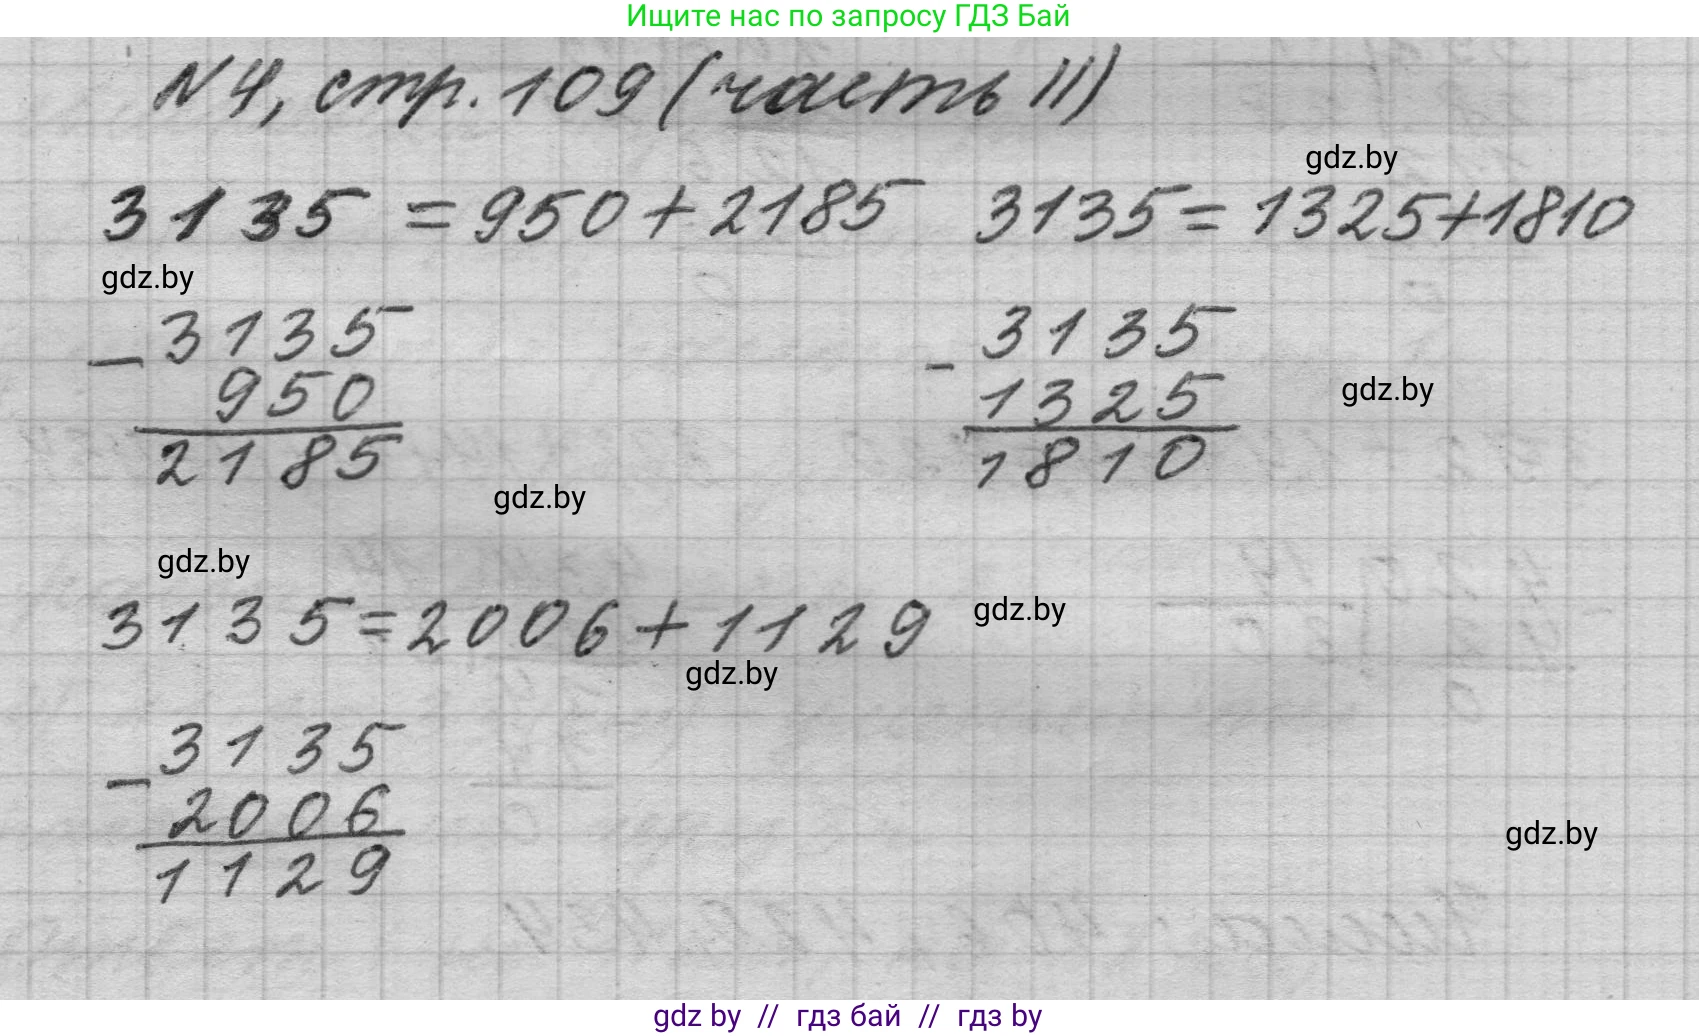 Ищите нас по запросу ГДЗ Бай
№4, стр. 109 (часть II)
gdz.by
3135 = 950 + 2185 3135 = 1325 + 1810
gdz.by
3135 3135
- -
950 1325
gdz.by
2185 1810
gdz.by
gdz.by
3135 = 2006 + 1129
gdz.by
gdz.by
3135
-
2006
gdz.by
1129
gdz by // гдз бай // гдз by